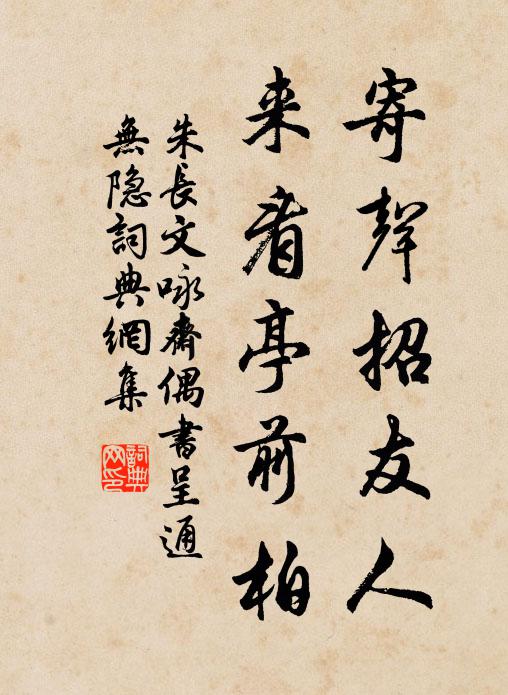 寄聲招友人
来看亭前柏
朱長文咏齋偶書呈通
無隐詞典網集
詞典网印